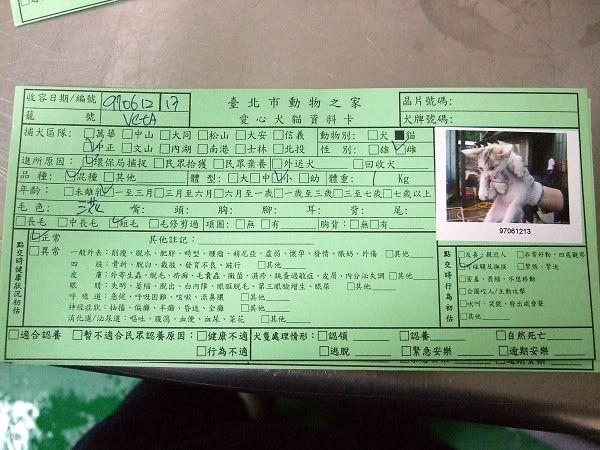 收容日期/編號 970612 13 臺北市動物之家 晶片號碼:
籠 號 愛心犬貓資料卡 犬牌號碼:
捕犬區隊: □萬華 □中山 □大同 □松山 □大安 □信義 動物別: □犬 ■貓
☑中正 □文山 □內湖 □南港 □士林 □北投 性 別: □雄 ☑雌
進所原因: ☑環保局捕捉 □民眾拾獲 □民眾棄養 □外送犬 □回收犬
品 種: ☑混種 □其他 體 型: □大 □中 ☑小 □幼 體重: 1 Kg
年齡: □未離乳 ☑一至三月 □三月至六月 □六月至一歲 □一歲至三歲 □三至七歲 □七歲以上
毛 色: 三花 嘴: 頭: 胸: 腳: 耳: 背: 尾:
□長毛 □中長毛 ☑短毛 □毛修剪過 項圈: □無 □有 胸背: □無 □有
97061213
點交時健康狀況初估
☑正常 其他註記:
□異常 一般外表:削瘦、脫水、肥胖、畸型、腫瘤、棉尼亞、虛弱、懷孕、發情、眼奶、外傷 □其他
四 肢:骨折、脫臼、截肢、發育不良、跛行 □其他
皮 膚:外寄生蟲、脫毛、疥癬、毛囊蟲、黴菌、濕疹、跳蚤過敏症、皮屑、內分泌失調 □其他
眼 睛:失明、萎縮、脫出、白內障、眼瞼脫毛、第三眼瞼增生、眼屎 □其他
呼 吸 道:急促、呼吸困難、咳嗽、流鼻膿 □其他
神經症狀:抽搐、偏癱、半癱、昏迷、全癱 □其他
消化道/泌尿道:嘔吐、腹瀉、血便、血尿、茶花 □其他
點交時行為初估
□友善、親近人 □非常好動、四處觀察
☑可碰觸及撫摸 □緊張、警迷
□害羞、畏縮、不想移動
□企圖咬人/主動攻擊
□火鬥、哭號、發出威脅聲
□其他
□適合認養 □暫不適合民眾認養原因: □健康不適 犬隻處理情形: □認領 □認養 □自然死亡
□行為不適 □逃脫 □緊急安樂 □逾期安樂